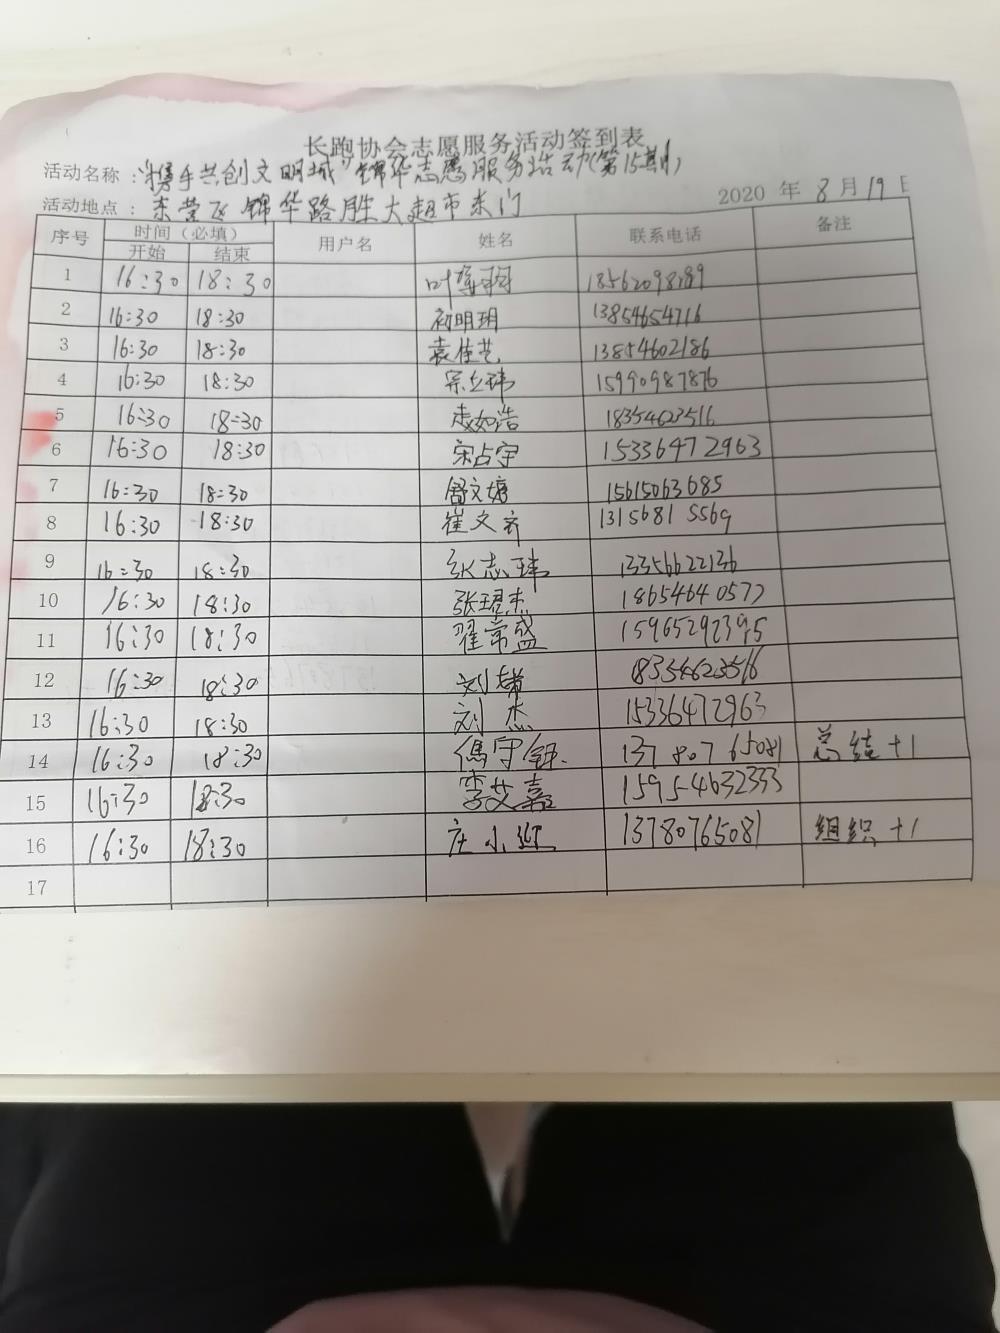 长跑协会志愿服务活动签到表
活动名称：“携手共创文明城”锦华志愿服务活动(第15期)
2020 年 8 月 19 日
活动地点：东营区锦华路胜大超市东门
序号 时间（必填） 用户名 姓名 联系电话 备注
开始 结束
1 16:30 18:30 18562098289
2 16:30 18:30 初明玥 13854654716
3 16:30 18:30 袁佳艺 13854602186
4 16:30 18:30 宗立玮 15990987876
5 16:30 18:30 18354623516
6 16:30 18:30 宋占宇 15336472963
7 16:30 18:30 舒文婷 15615063685
8 16:30 18:30 崔文齐 13156815569
9 16:30 18:30 张志玮 13356622136
10 16:30 18:30 张珺杰 18654640577
11 16:30 18:30 翟常盛 15965292395
12 16:30 18:30 刘
13 16:30 18:30 刘杰 15336472963
14 16:30 18:30 13780765081 总结+1
15 16:30 18:30 李艾嘉 15954632333
16 16:30 18:30 庄小红 13780765081 组织+1
17